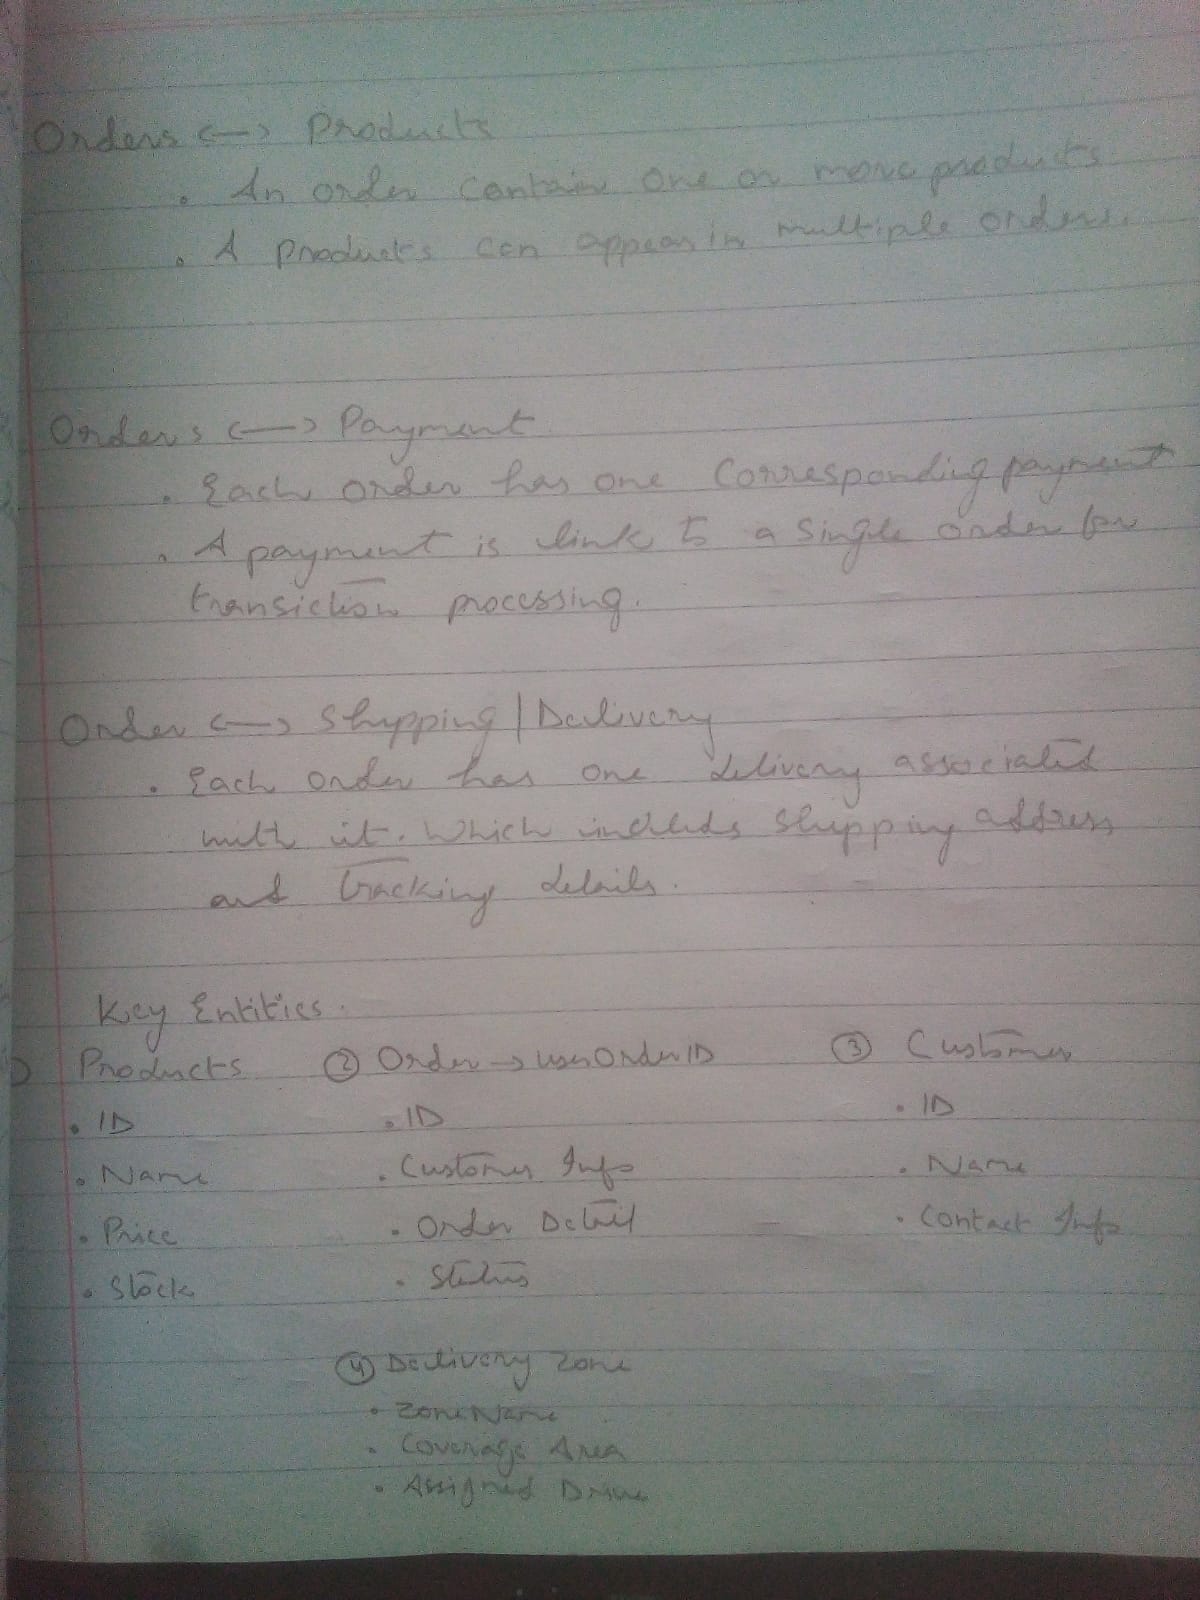 Orders <-> Products
• An order contain one or more products.
• A products can appear in multiple orders.
Orders <-> Payment
• Each order has one Corresponding payment
• A payment is link to a Single order for
transiction processing.
Order <-> Shipping | Delivery
• Each order has one delivery associated
with it. Which includs shipping address
and tracking details.
Key Entities.
Products ② Order -> userOrderID ③ Customer
• ID • ID • ID
• Name • Customer Info • Name
• Price • Order Detail • Contact Info
• Stock • Status
④ Delivery Zone
• ZoneName
• Coverage Area
• Assigned Driver